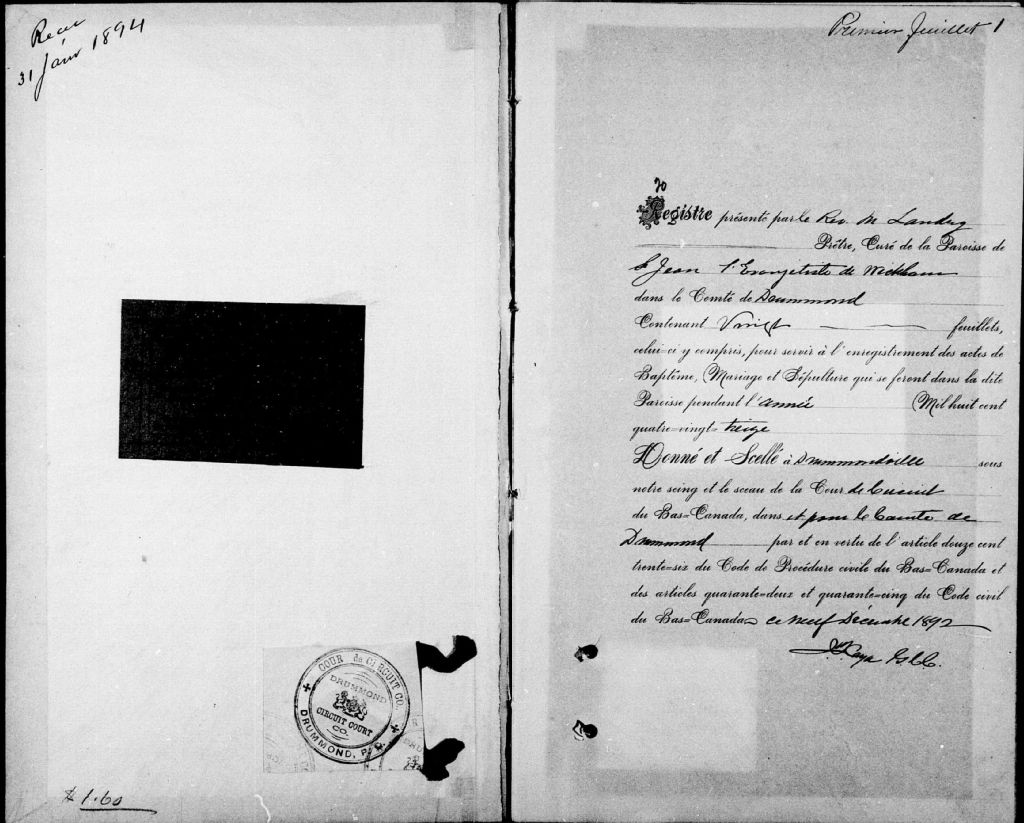 Recu
31 Janv 1894
COUR de CIRCUIT CO.
DRUMMOND
CIRCUIT COURT
CO.
DRUMMOND, P.Q.
$ 1.60
Premier feuillet 1
Registre présenté par le Rev. M Landry
Prêtre, Curé de la Paroisse de
St Jean l'Evangeliste de Wickham
dans le Comté de Drummond
Contenant Vingt feuillets,
celui=ci y compris, pour servir à l'enregistrement des actes de
Baptême, Mariage et Sépulture qui se feront dans la dite
Paroisse pendant l'année Mil huit cent
quatre=vingt= treize
Donné et Scellé à Drummondville sous
notre seing et le sceau de la Cour de Circuit
du Bas=Canada, dans et pour le Comte de
Drummond par et en vertu de l'article douze cent
trente=six du Code de Procédure civile du Bas=Canada et
des articles quarante=deux et quarante=cinq du Code civil
du Bas=Canada ce neuf Décembre 1892